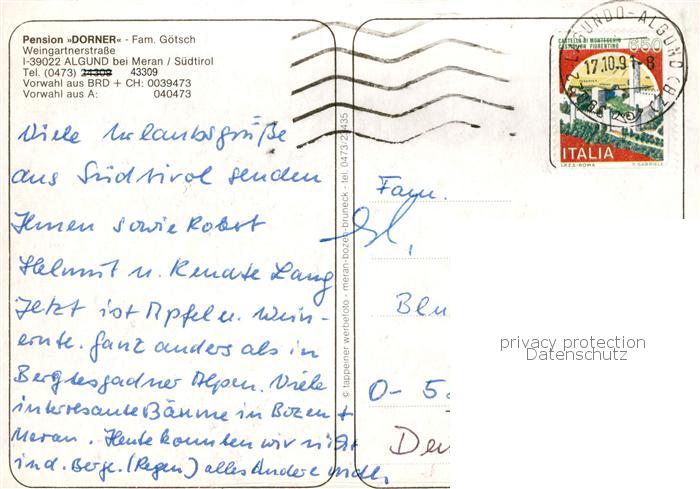 Pension »DORNER« - Fam. Götsch
Weingartnerstraße
I-39022 ALGUND bei Meran / Südtirol
Tel. (0473) 24309 43309
Vorwahl aus BRD + CH: 0039473
Vorwahl aus A: 040473
Viele Urlaubsgrüße
aus Südtirol senden
Ihnen sowie Robert
Helmut u. Renate Lang
Jetzt ist Apfel u. Wein-
ernte. Ganz anders als in
Bergtesgadner Alpen. Viele
interesante Bäume in Bozen +
Meran. Heute konnten wir nicht
in d. Berge. (Regen) alles Andere
© tappeiner werbefoto - meran-bozen-bruneck - tel. 0473/2 435
LAGUNDO-ALGUND (BZ)
17.10.91-8
CASTELLO DI MONTECCHIO
CASTIGLION FIORENTINO
650
ITALIA
I.P.Z.S.-ROMA
Fam.
Blu
O- 5
De
privacy protection
Datenschutz